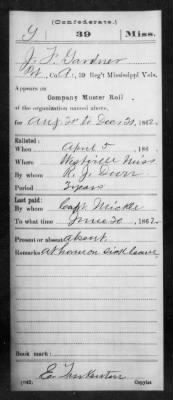 (Confederate.)
G 39 Miss.
J. T. Gardner
Pvt, Co. A, 39 Reg't Mississippi Vols.
Appears on
Company Muster Roll
of the organization named above,
for Aug 30 to Dec 30, 1862.
Enlisted:
When April 5, 186
Where Westville Miss
By whom R. J. Durr
Period 3 years
Last paid:
By whom Capt. Mickle
To what time June 30, 1862.
Present or absent Absent
Remarks: At home on sick leave
Book mark:
(642) Copyist.